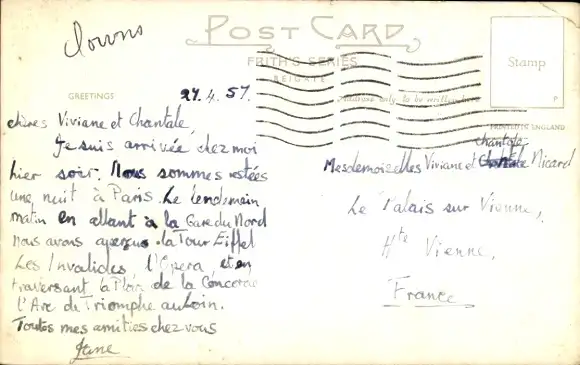 Clowns
POST CARD
FRITH'S SERIES
REIGATE
Stamp
GREETINGS
Address only to be written here
PRINTED IN ENGLAND
27.4.57.
chères Viviane et Chantale,
Je suis arrivée chez moi
hier soir. Nous sommes restées
une nuit à Paris. Le lendemain
matin en allant à la Gare du Nord
nous avons aperçus la Tour Eiffel
Les Invalides, l'Opera, et en
traversant la Place de la Concorde
l'Arc de Triomphe au loin.
Toutes mes amities chez vous
Jane
chantale
Mesdemoiselles Viviane et Nicard
Le Palais sur Vienne,
Hte Vienne,
France